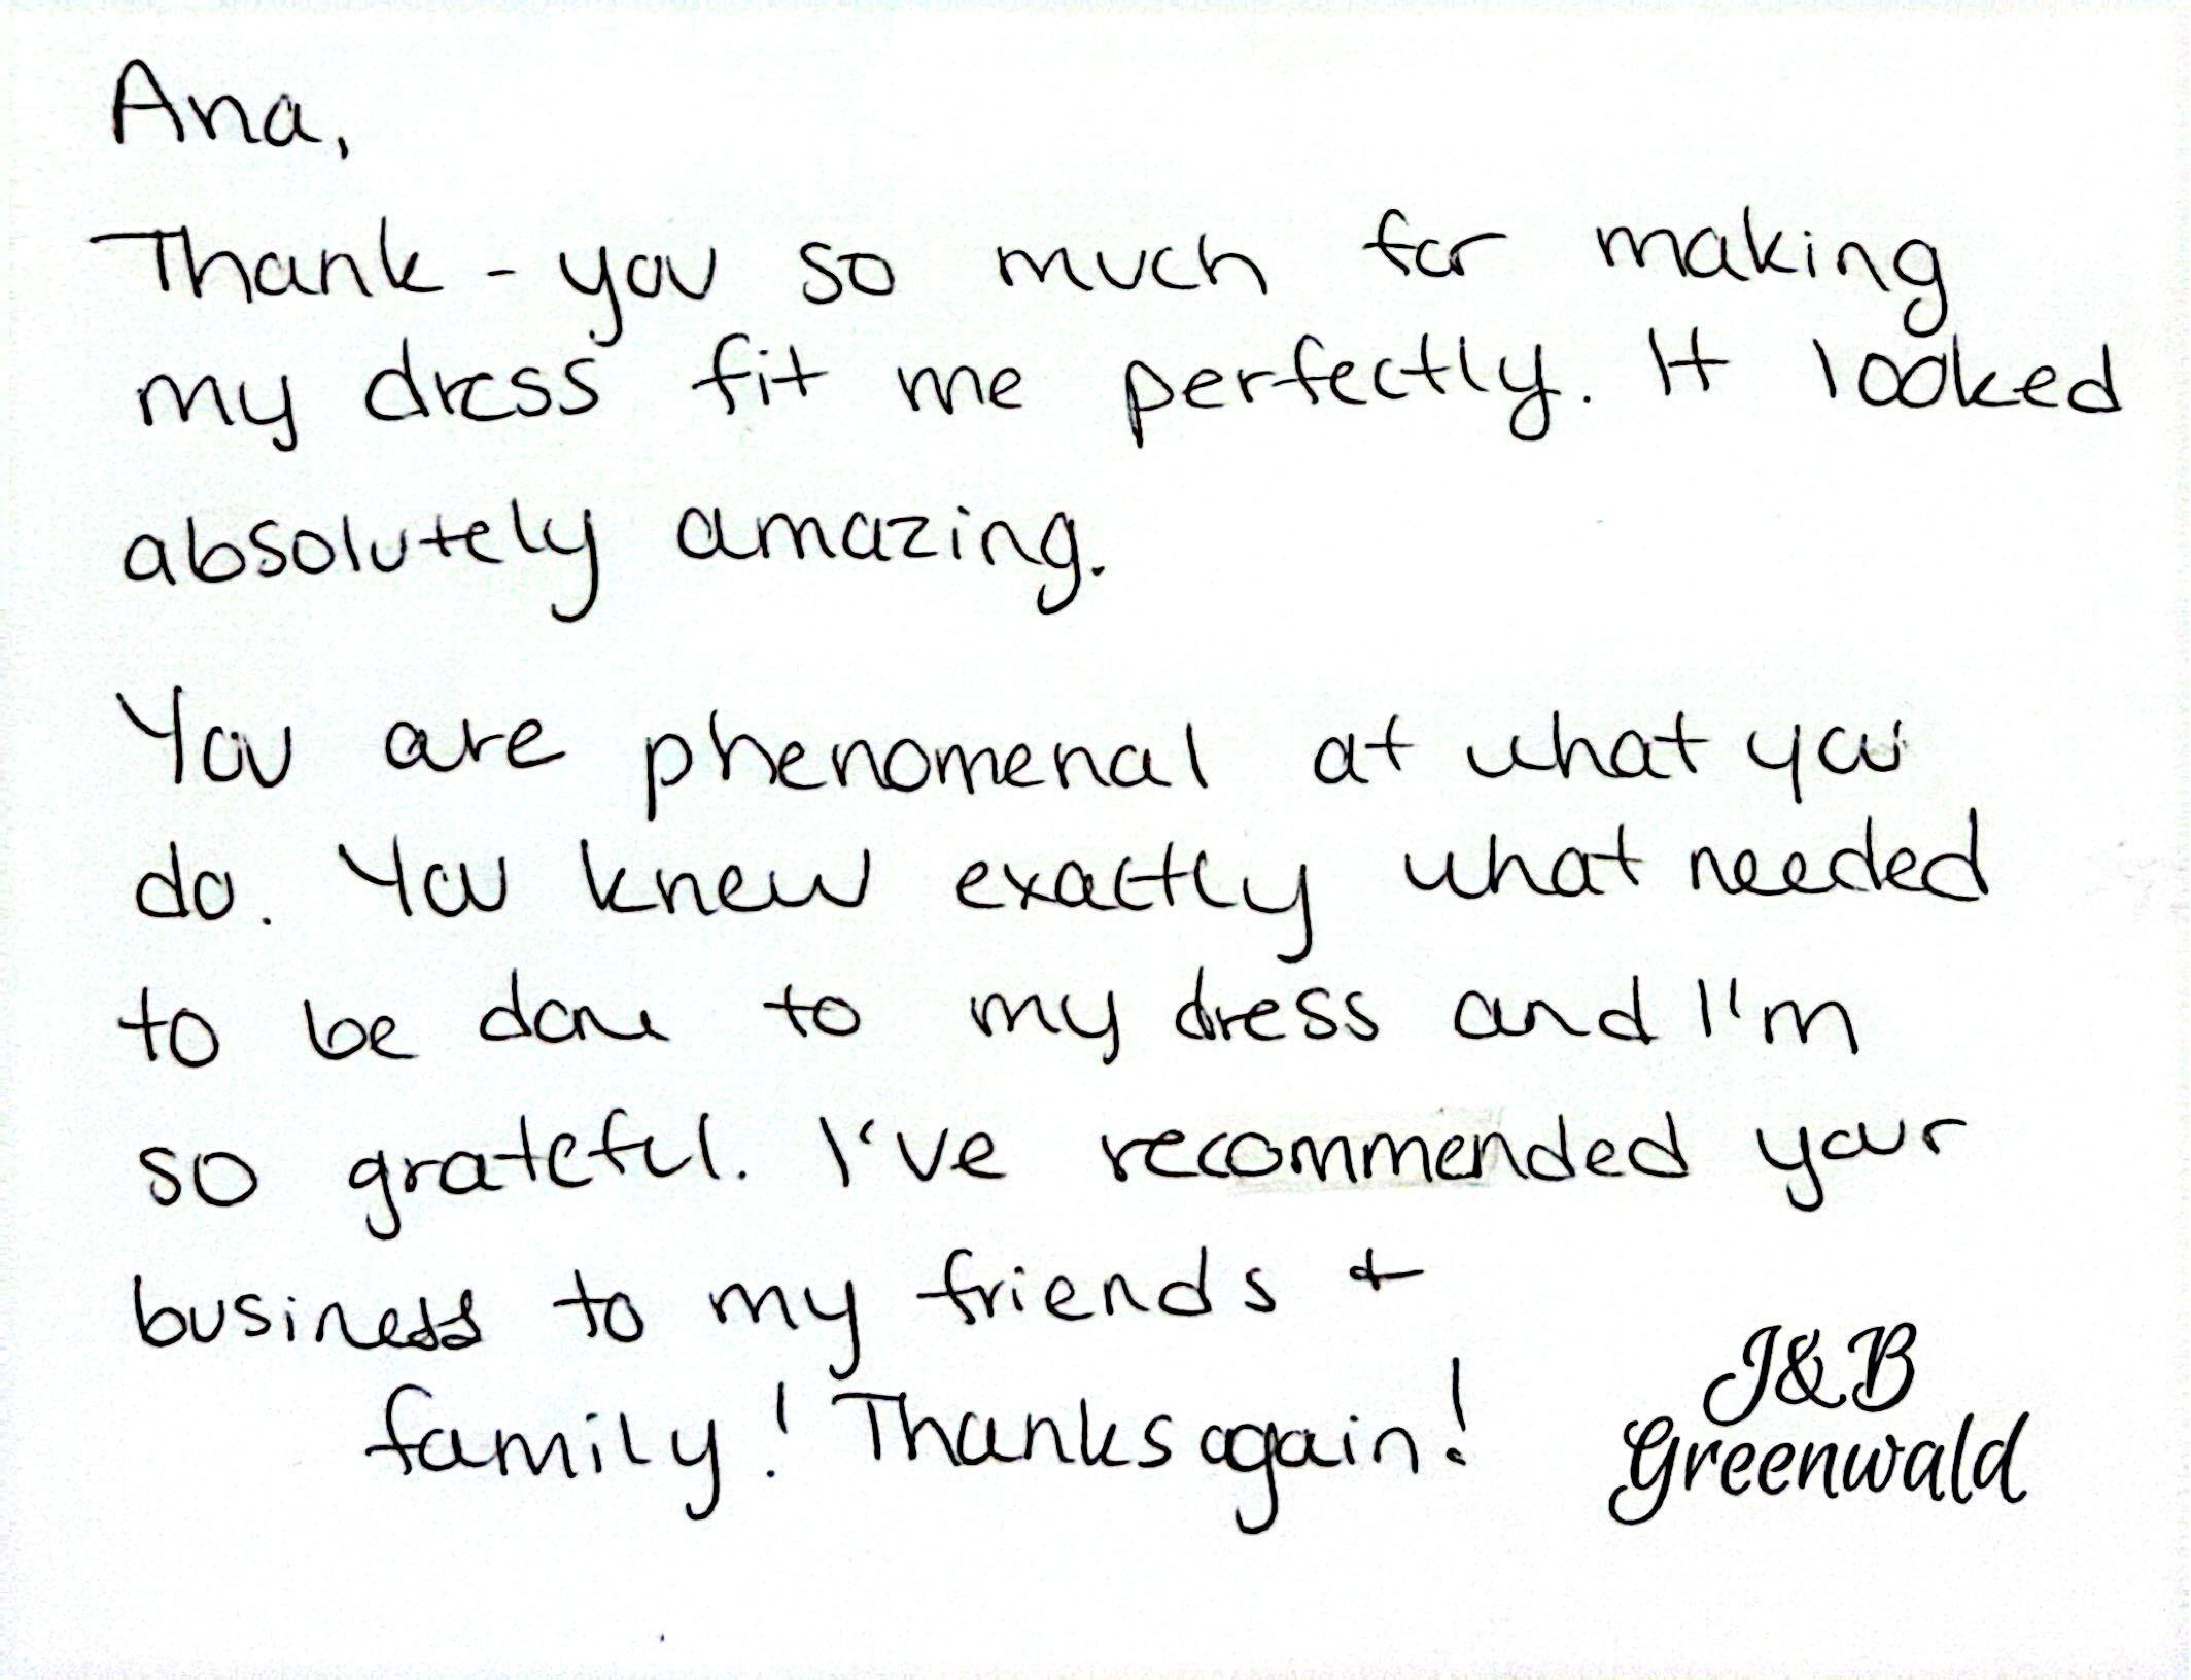 Ana,
Thank-you so much for making
my dress fit me perfectly. It looked
absolutely amazing.
You are phenomenal at what you
do. You knew exactly what needed
to be done to my dress and I'm
so grateful. I've recommended your
business to my friends &
family! Thanks again!
J&B
Greenwald